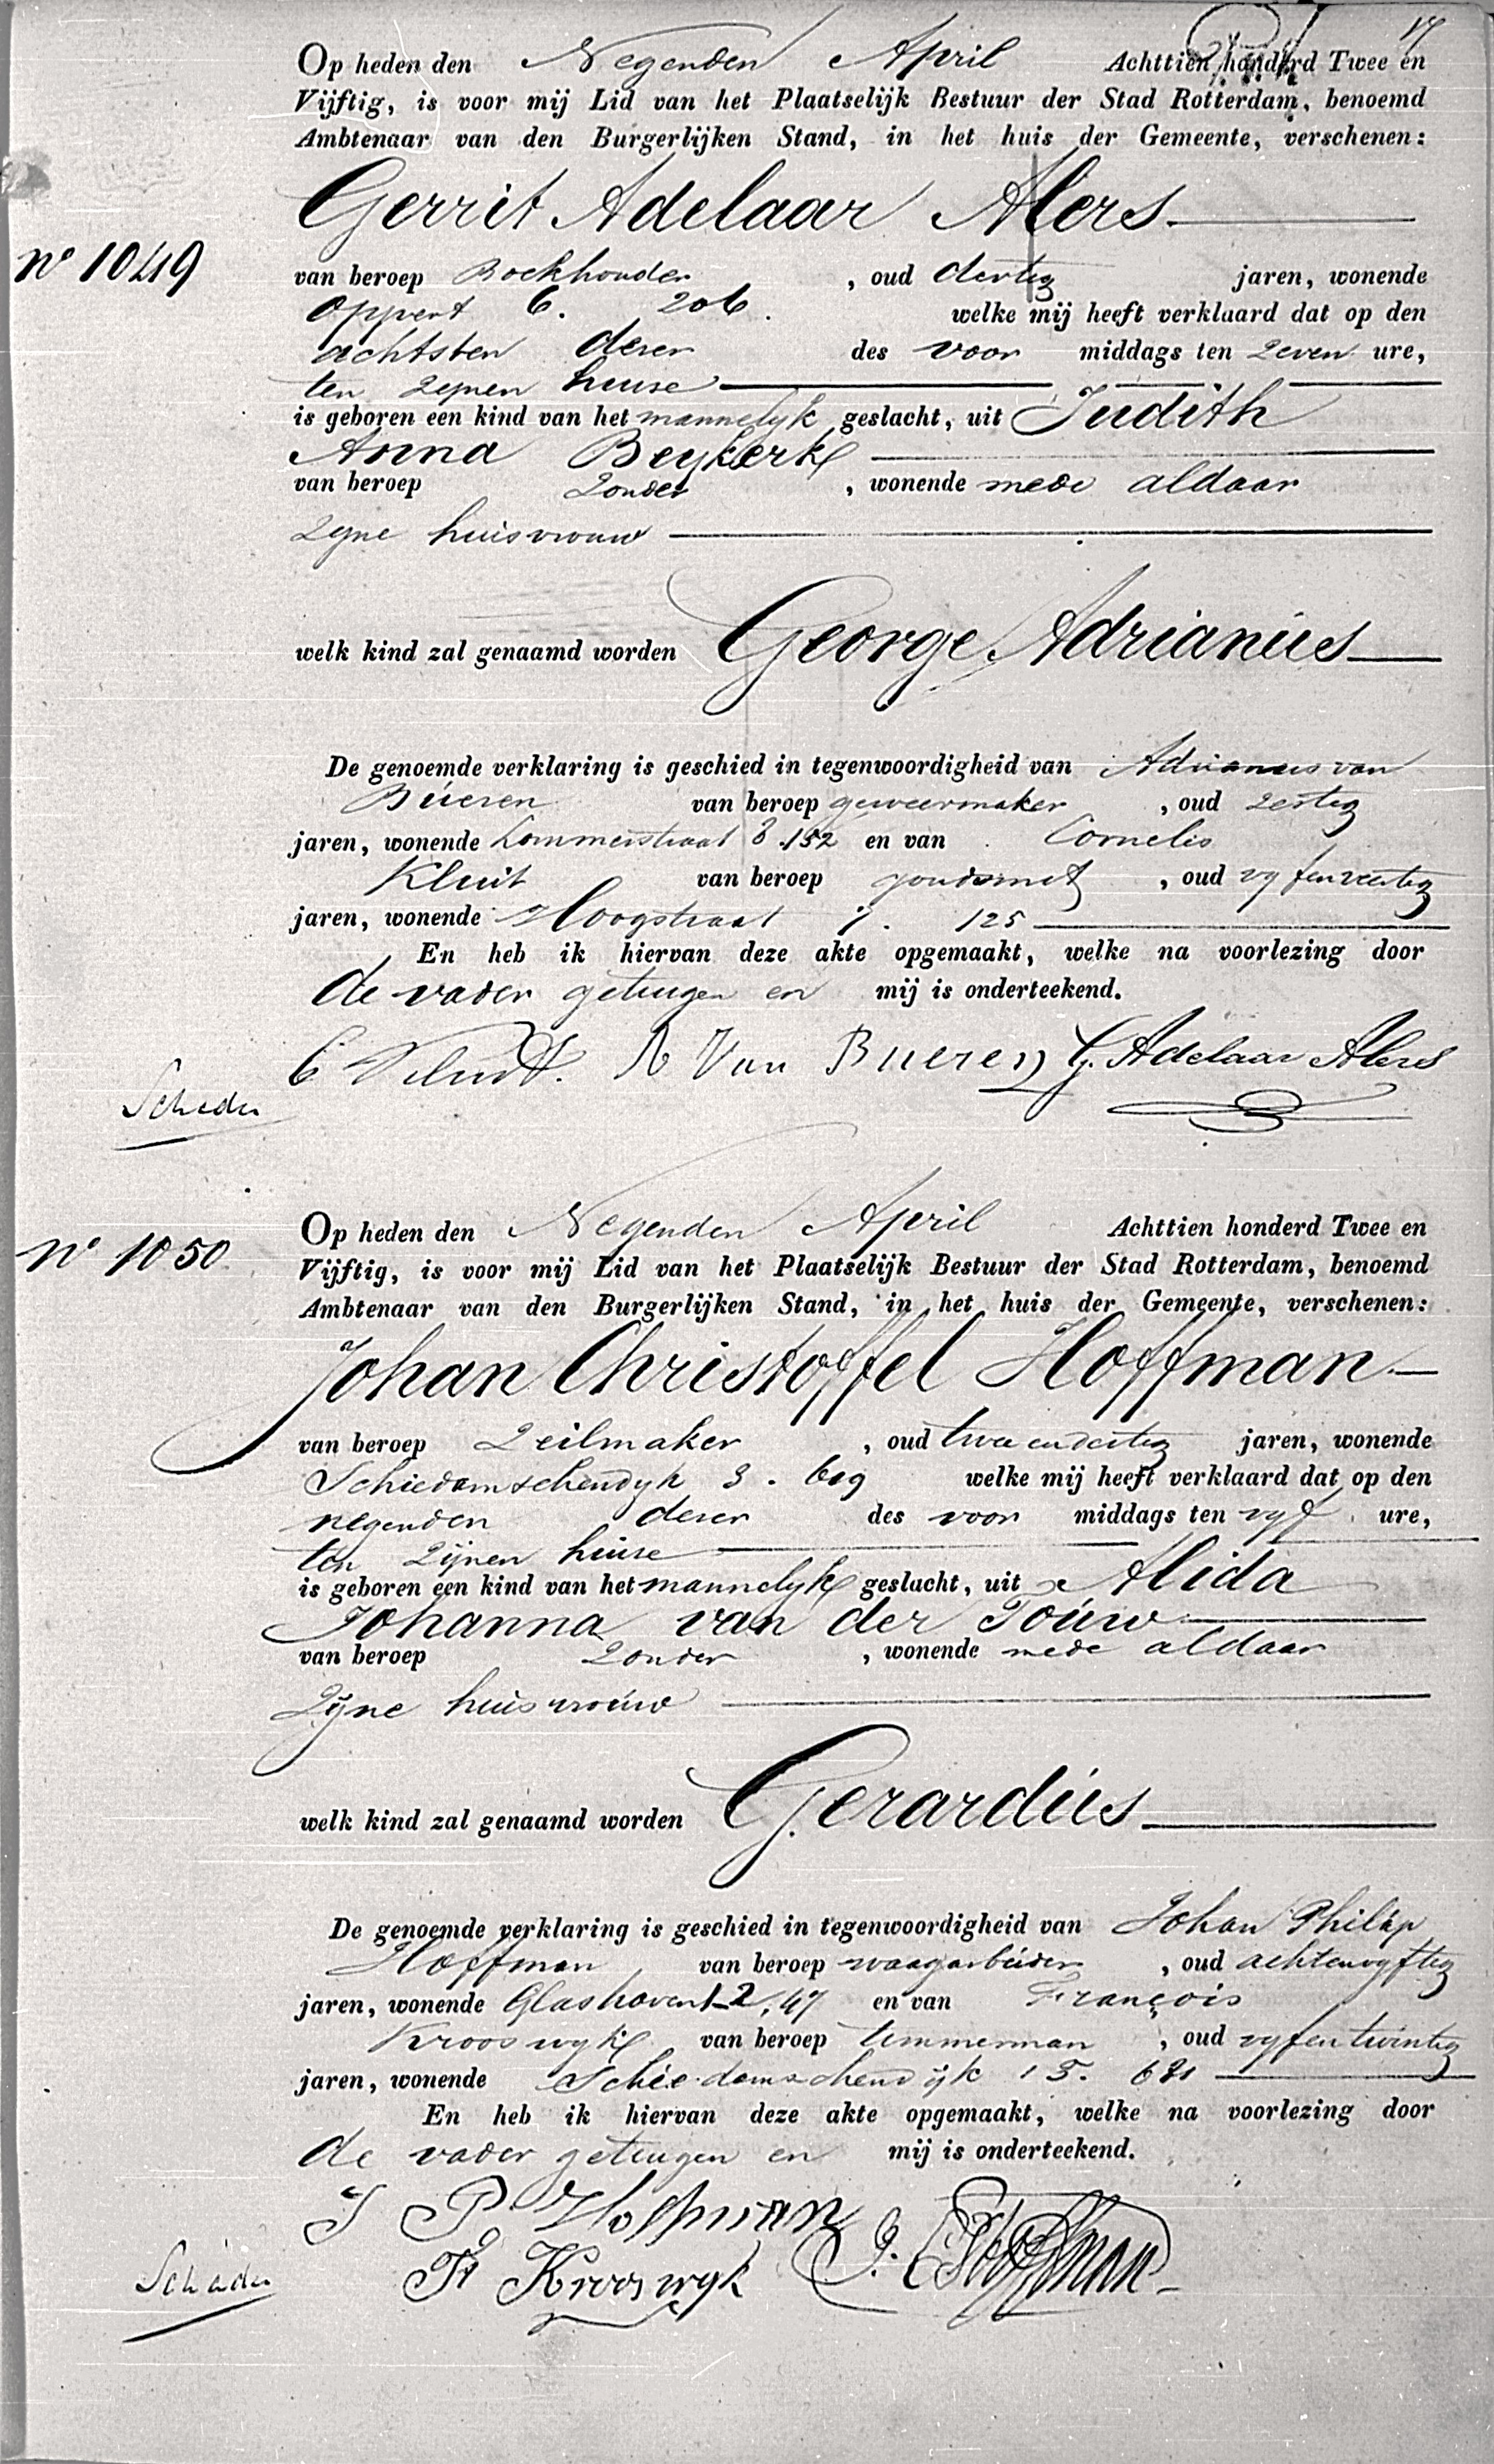 17
Op heden den Negenden April Achttien honderd Twee en
Vijftig, is voor mij Lid van het Plaatselijk Bestuur der Stad Rotterdam, benoemd
Ambtenaar van den Burgerlijken Stand, in het huis der Gemeente, verschenen:
Gerrit Adelaar Alers
No 1049
van beroep Boekhouder, oud dertig jaren, wonende
Oppert 6. 206. welke mij heeft verklaard dat op den
achtsten dezer des voor middags ten zeven ure,
ten zynen huise
is geboren een kind van het mannelyk geslacht, uit Judith
Anna Beykerk
van beroep zonder, wonende mede aldaar
zyne huisvrouw
welk kind zal genaamd worden George Adrianús
De genoemde verklaring is geschied in tegenwoordigheid van Adrianus van
Búeren van beroep geweermaker, oud zestig
jaren, wonende Lommerstraat 8.152 en van Cornelis
Kluit van beroep goudsmit, oud vyfenveertig
jaren, wonende Hoogstraat 7. 125
En heb ik hiervan deze akte opgemaakt, welke na voorlezing door
de vader getuigen en mij is onderteekend.
C Kluit. A Van Bueren G. Adelaar Alers
No 1050
Op heden den Negenden April Achttien honderd Twee en
Vijftig, is voor mij Lid van het Plaatselijk Bestuur der Stad Rotterdam, benoemd
Ambtenaar van den Burgerlijken Stand, in het huis der Gemeente, verschenen:
Johan Christoffel Hoffman
van beroep Zeilmaker, oud twee en dertig jaren, wonende
Schiedamschendyk 3. 619 welke mij heeft verklaard dat op den
negenden dezer des voor middags ten vyf ure,
ten zijnen huise
is geboren een kind van het mannelyk geslacht, uit Alida
Johanna van der Toúw
van beroep zonder, wonende mede aldaar
Zijne huisvroúw
welk kind zal genaamd worden Gerardús
De genoemde verklaring is geschied in tegenwoordigheid van Johan Philip
Hoffman van beroep waagarbeider, oud achtenvyftig
jaren, wonende Glashaven 12.47 en van François
Krooswyk van beroep timmerman, oud vyfentwintig
jaren, wonende Schiedamschendijk 13. 621
En heb ik hiervan deze akte opgemaakt, welke na voorlezing door
de vader getuigen en mij is onderteekend.
J P Hoffman
Fs Krooswyk J. C Hoffman